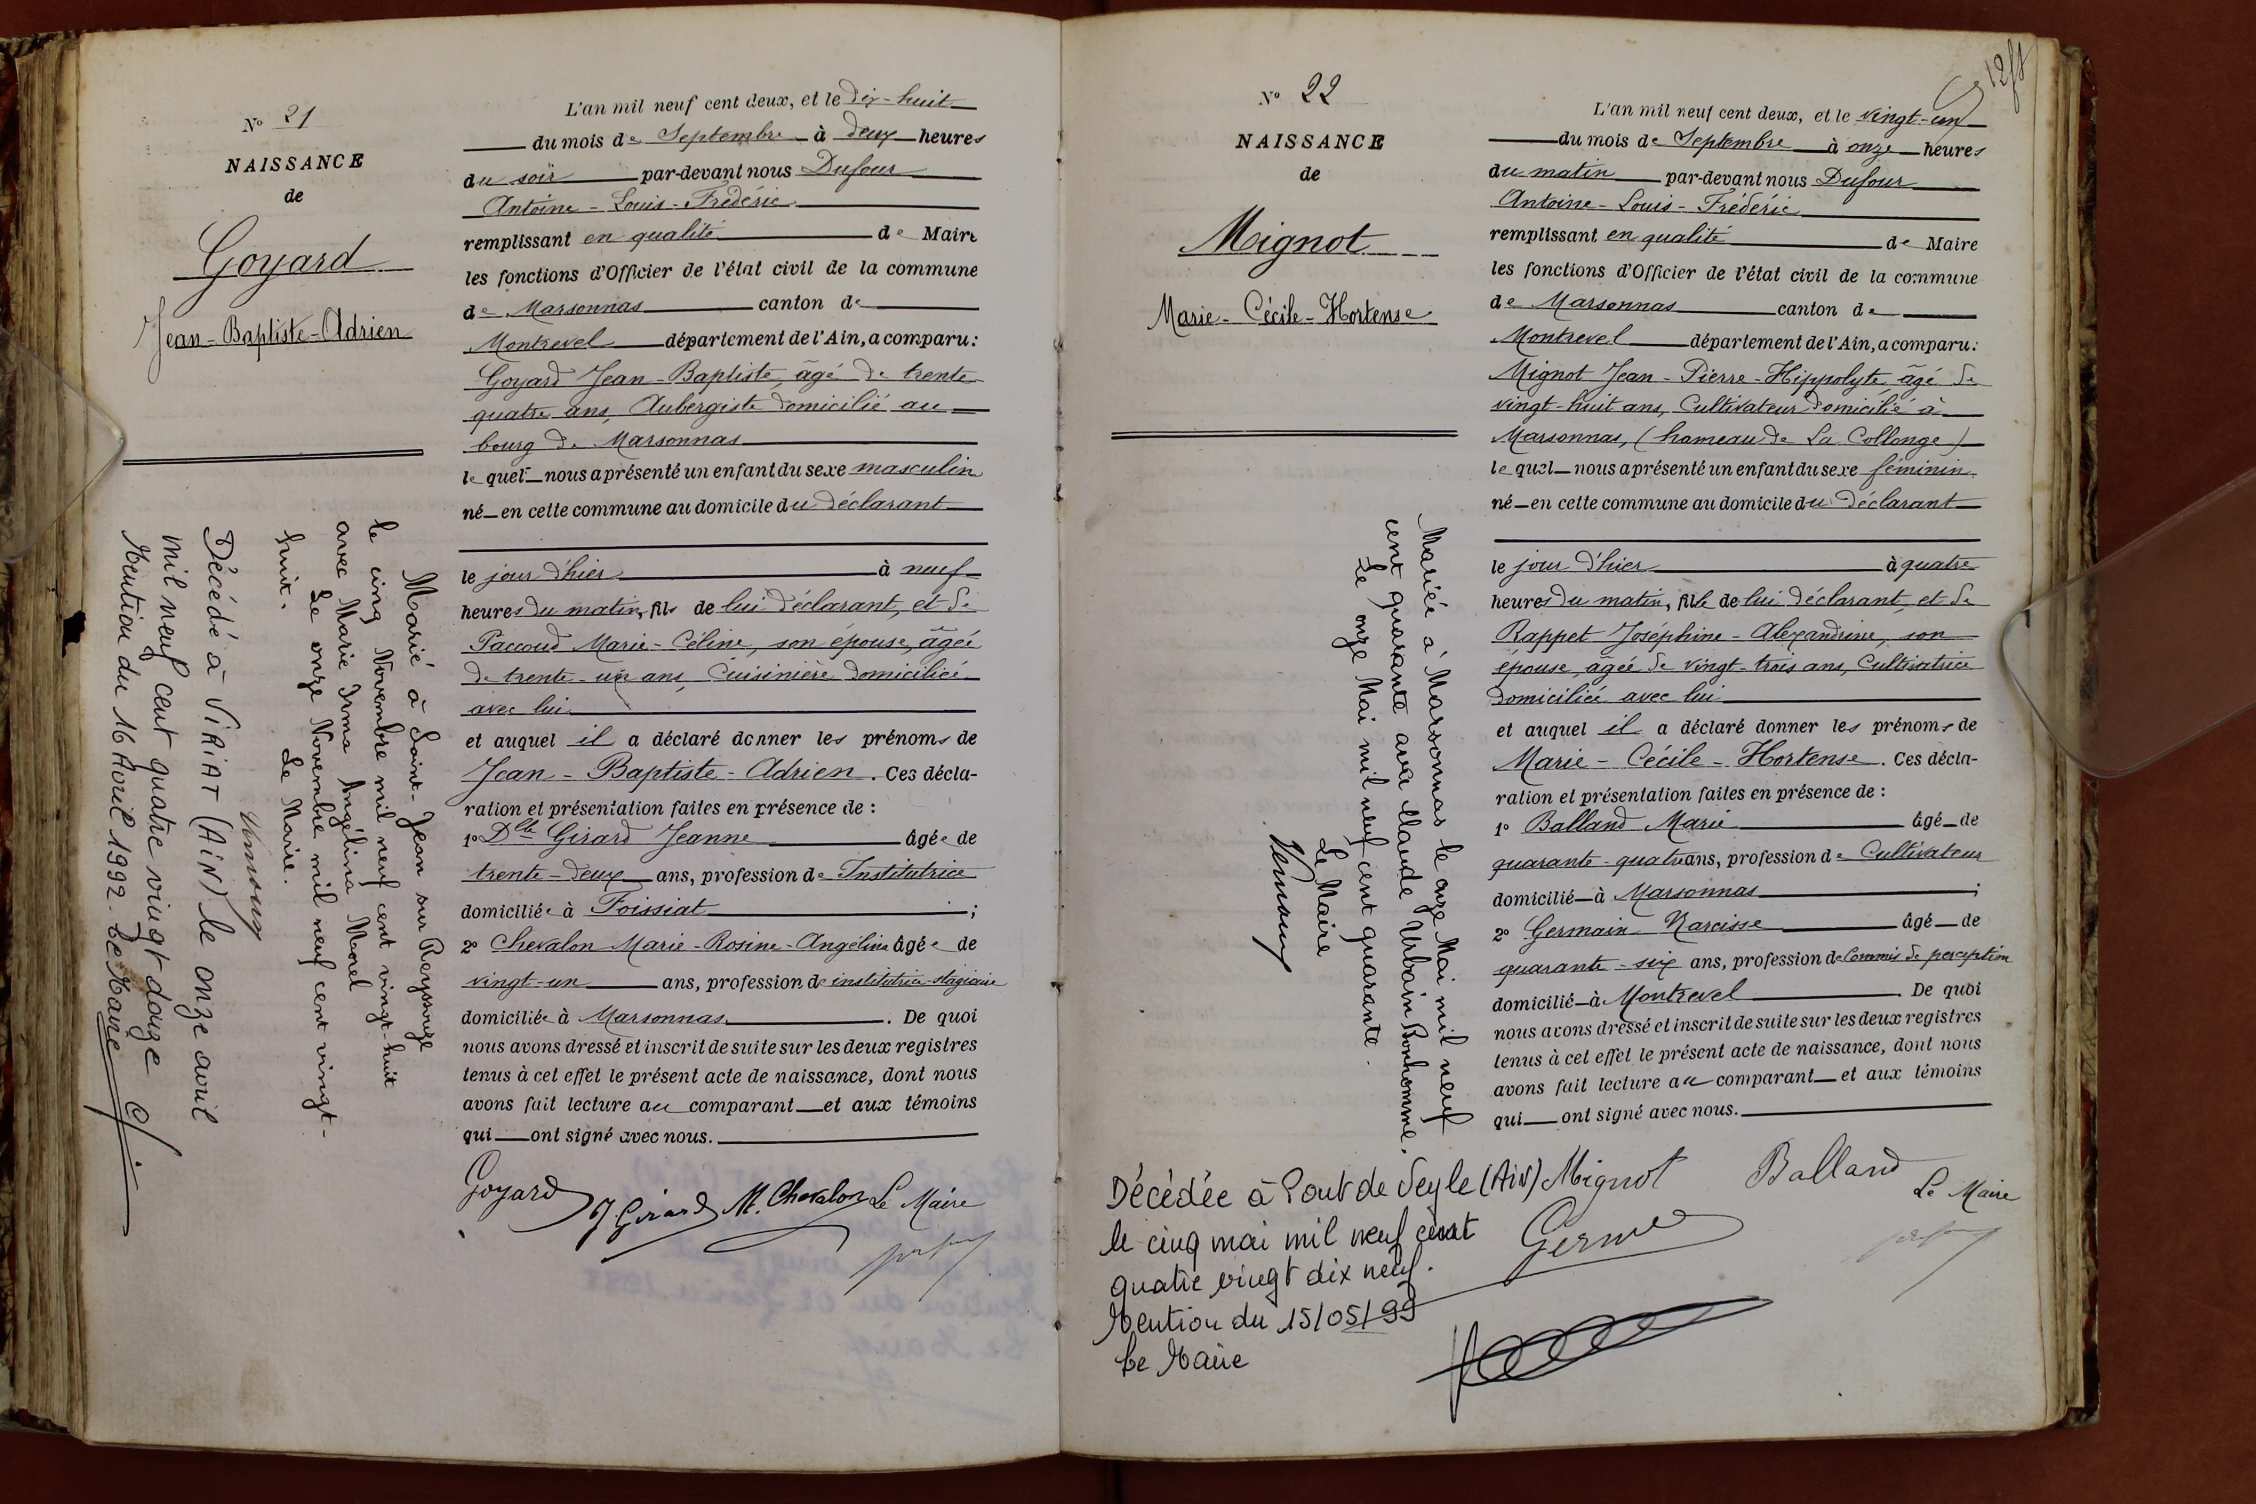 N° 21
NAISSANCE
de
Goyard
Jean-Baptiste-Adrien
L'an mil neuf cent deux, et le dix-huit
du mois de Septembre à deux heures
du soir par-devant nous Dufour
Antoine-Louis-Frédéric
remplissant en qualité de Maire
les fonctions d'Officier de l'état civil de la commune
de Marsonnas canton de
Montrevel département de l'Ain, a comparu:
Goyard Jean-Baptiste, âgé de trente
quatre ans, Aubergiste domicilié au
bourg de Marsonnas
lequel nous a présenté un enfant du sexe masculin
né en cette commune au domicile du déclarant
le jour d'hier à neuf
heures du matin, fils de lui déclarant, et de
Paccoud Marie-Céline, son épouse, âgée
de trente-un ans, Cuisinière domiciliée
avec lui
et auquel il a déclaré donner les prénoms de
Jean-Baptiste-Adrien. Ces décla-
ration et présentation faites en présence de:
1° Dlle Girard Jeanne âgée de
trente-deux ans, profession de Institutrice
domiciliée à Foissiat ;
2° Chevalon Marie-Rosine-Angélina âgée de
vingt-un ans, profession de institutrice stagiaire
domiciliée à Marsonnas. De quoi
nous avons dressé et inscrit de suite sur les deux registres
tenus à cet effet le présent acte de naissance, dont nous
avons fait lecture au comparant et aux témoins
qui ont signé avec nous.
Goyard J. Girard M. Chevalon Le Maire
Marié à Saint-Jean sur Reyssouze
le cinq Novembre mil neuf cent vingt-huit
avec Marie Irma Angélina Morel
Le onze Novembre mil neuf cent vingt-
huit. Le Maire.
Décédé à VIRIAT (AIN) le onze avril
mil neuf cent quatre vingt douze
Mention du 16 Avril 1992. Le Maire
N° 22
NAISSANCE
de
Mignot
Marie-Cécile-Hortense
L'an mil neuf cent deux, et le vingt-un
du mois de Septembre à onze heures
du matin par-devant nous Dufour
Antoine-Louis-Frédéric
remplissant en qualité de Maire
les fonctions d'Officier de l'état civil de la commune
de Marsonnas canton de
Montrevel département de l'Ain, a comparu:
Mignot Jean-Pierre-Hippolyte âgé de
vingt-huit ans, Cultivateur domicilié à
Marsonnas, (hameau de La Collonge)
lequel nous a présenté un enfant du sexe féminin
né en cette commune au domicile du déclarant
le jour d'hier à quatre
heures du matin, fille de lui déclarant, et de
Rappet Joséphine-Alexandrine, son
épouse, âgée de vingt-trois ans, Cultivatrice
domiciliée avec lui
et auquel il a déclaré donner les prénoms de
Marie-Cécile-Hortense. Ces décla-
ration et présentation faites en présence de:
1° Balland Marie âgé de
quarante-quatre ans, profession de Cultivateur
domicilié à Marsonnas ;
2° Germain Narcisse âgé de
quarante-six ans, profession de Commis de perception
domicilié à Montrevel. De quoi
nous avons dressé et inscrit de suite sur les deux registres
tenus à cet effet le présent acte de naissance, dont nous
avons fait lecture au comparant et aux témoins
qui ont signé avec nous.
Mignot Balland Le Maire
Mariée à Marsonnas le onze Mai mil neuf
cent quarante avec Claude Urbain Bonhomme.
Le onze Mai mil neuf cent quarante.
Le Maire
Décédée à Pont de Veyle (AIN)
le cinq mai mil neuf cent
quatre vingt dix neuf.
Mention du 15/05/99
Le Maire